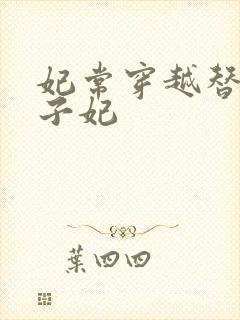 妃常穿越替
子妃
葉四四